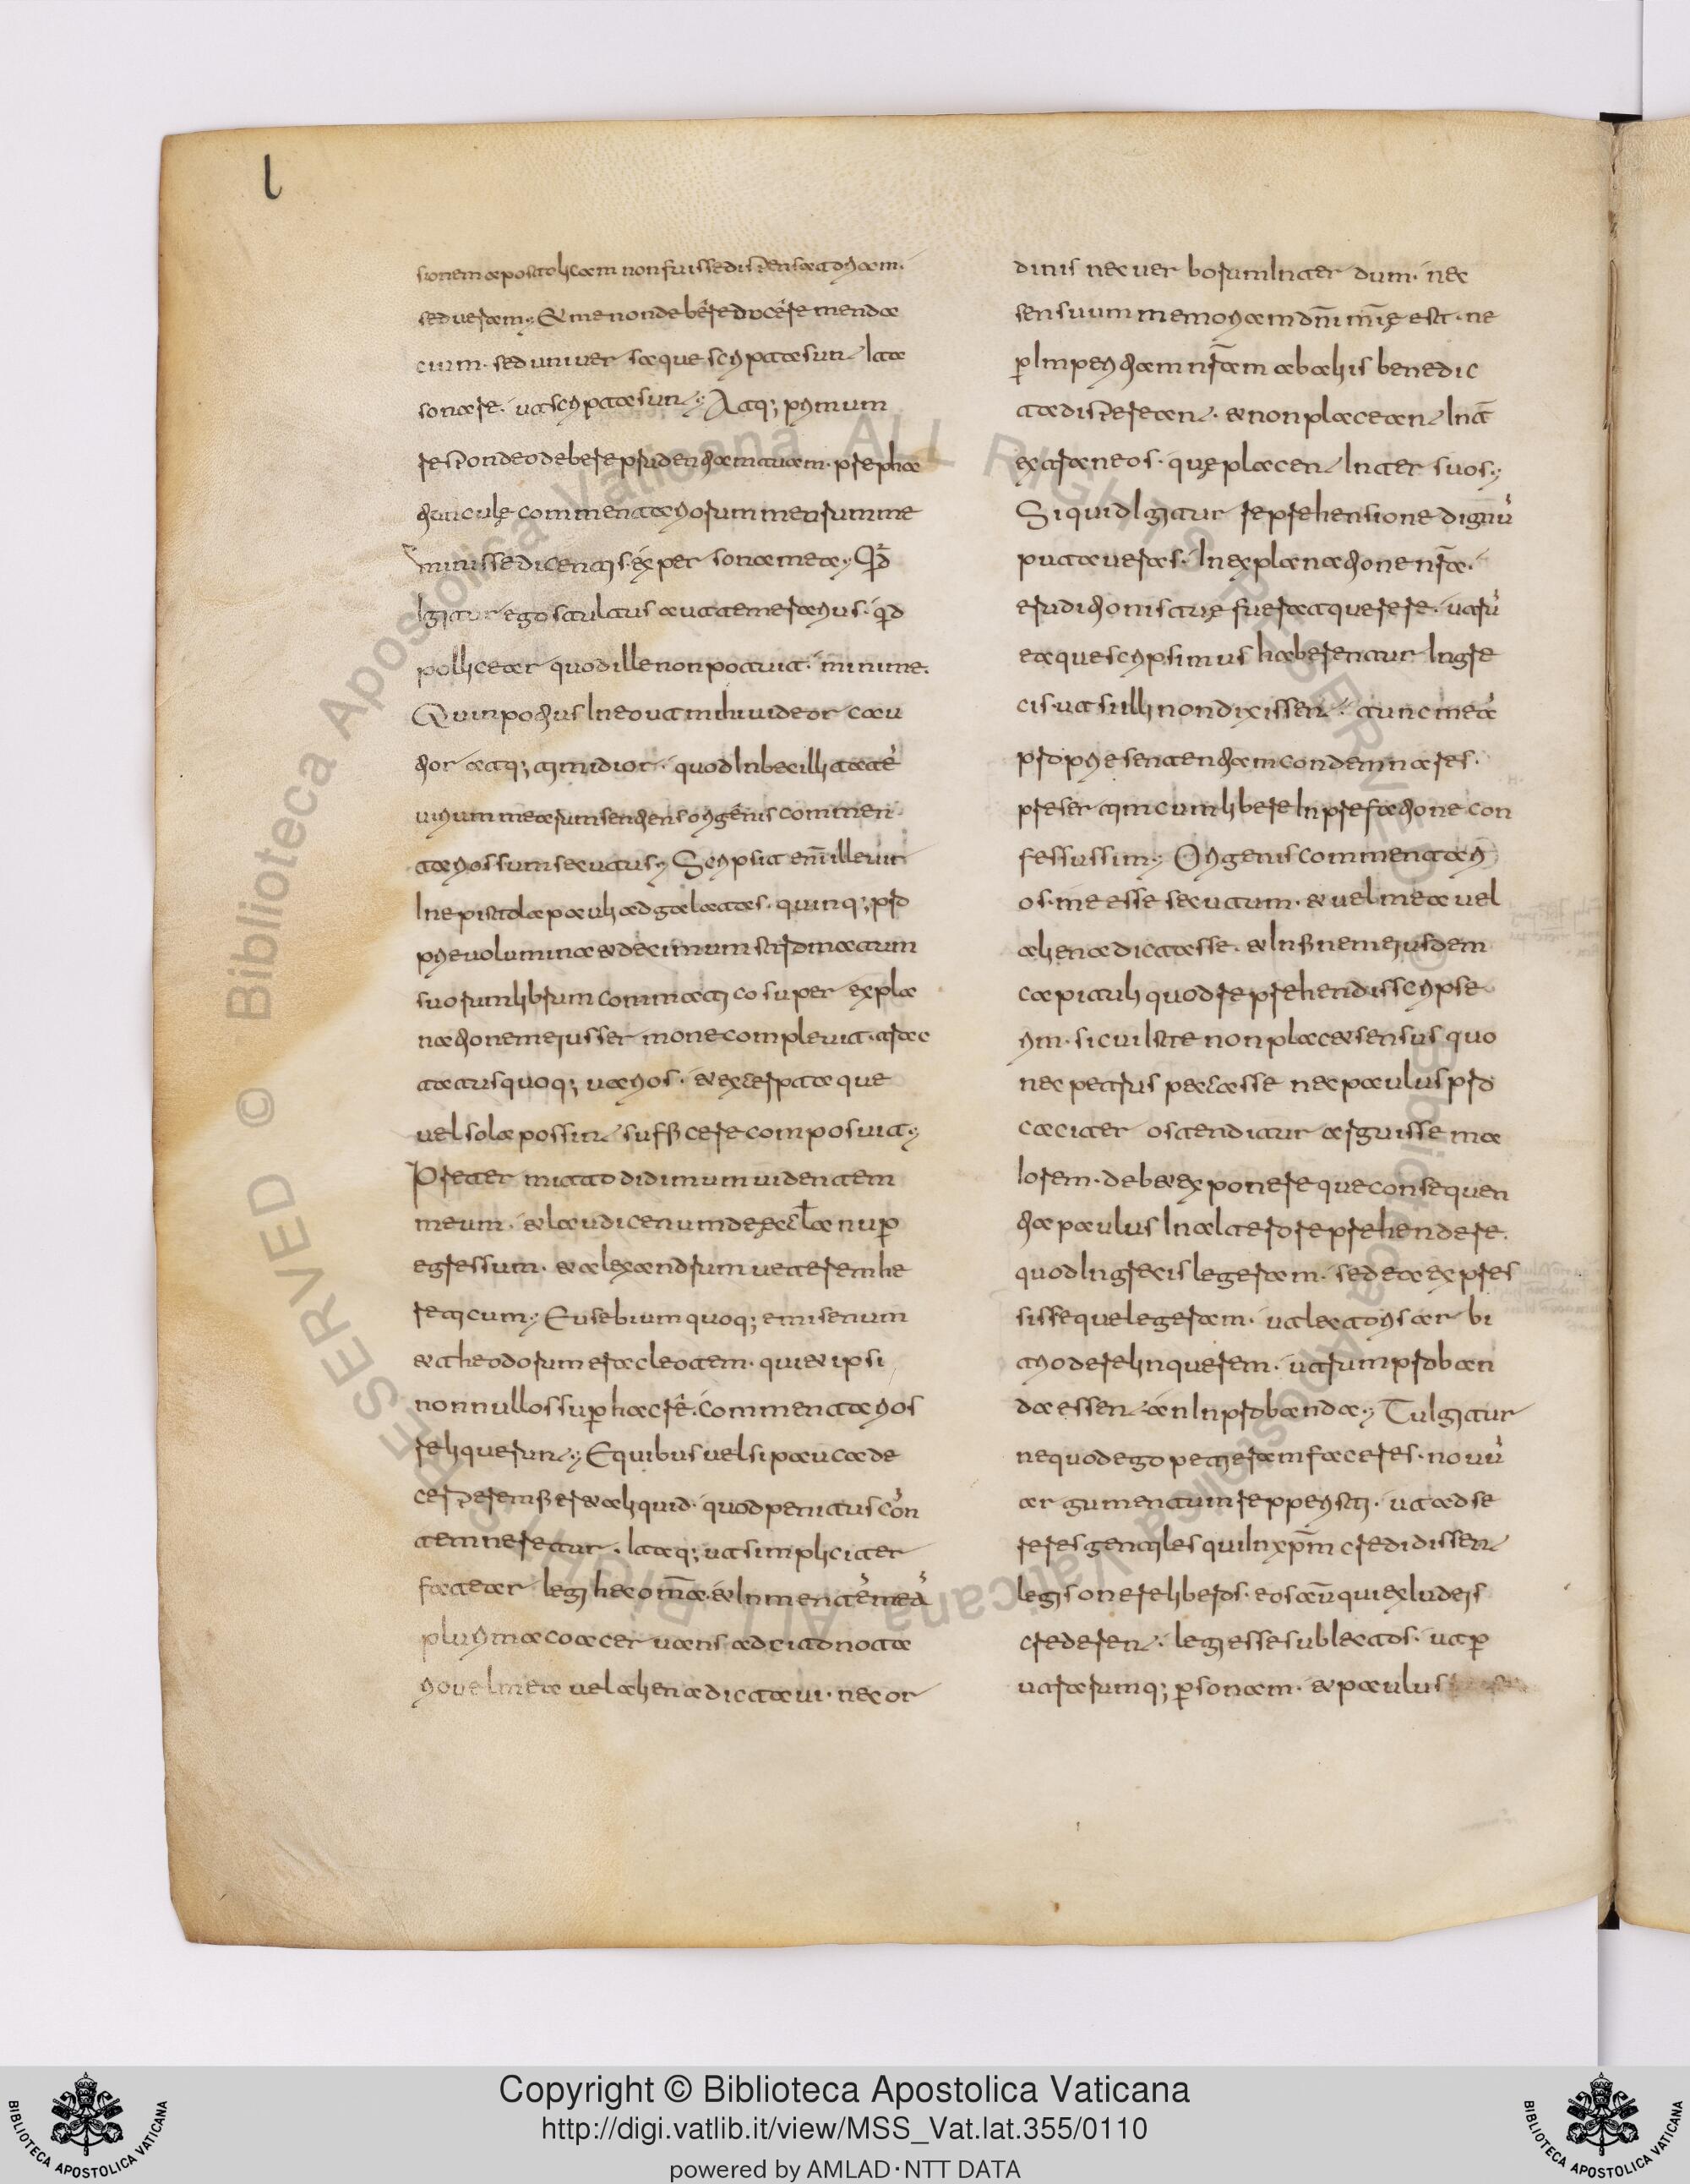 l
sionem apostolicam non fuisse dispensatoriam.
sed ueram; & me non debere docere menda
cium. sed uniuersaque scripta sunt ita
sonare. ut scripta sunt; Atq; primum
respondeo debere prudentiam tuam. prepha
tiuncule commentariorum meorum me
minisse dicentis ex persona mea; Qd
igitur ego stultus aut temerarius. qd
pollicetar quod ille non potuit. minime.
Quin potius in eo ut mihi uideor cau
tior atq; timidior. quod inbecillitatē
uirium mearum sentiens origenis commen
tarios sum secutus; Scripsit enī ille uir
in epistola pauli ad galatas. quinq; pro
prie uolumina & decimum stromatum
suorum librum commatico super expla
nationem eius sermone compleuit. trac
tatus quoq; uarios. & excerpta que
uel sola possint sufficere composuit;
Preter mitto didimum uidentem
meum. & laudicenum de eccła nup
egressum. & alexandrum ueterem he
reticum; Eusebium quoq; emisenum
& theodorum eracleotem. qui & ipsi
nonnullos sup hac rē. commentarios
reliquerunt; E quibus uel si pauca de
cerperem fier& aliquid. quod penitus con
temneretur. Itaq; ut simpliciter
fatear legi hec om̄a. & in mentē meā
plurima coaceruans adcito nota
rio uel mea uel aliena dictaui. nec or
dinis nec uerborum interdum. nec
sensuum memoriam dn̄i mīę est. ne
p imperitiam nr̄am ab aliis benedic
ta disperetant. & non placeant int̄
extraneos. quę placent inter suos;
Si quid igitur reprehensione dignū
putaueras. in explanatione nr̄a.
eruditionis tuę fuerat querere. utrū
ea que scripsimus haberentur in gre
cis. ut si illi non dixissent. tunc meā
proprie sententiam condemnares.
presertim cum libere in prefatione con
fessus sim; Origenis commentari
os. me esse secutum. & uel mea uel
aliena dictasse. & in finem eiusdem
capituli quod reprehendis scripse
rim. si cui iste non plac& sensus quo
nec petrus peccasse nec paulus pro
caciter ostenditur arguisse ma
iorem. deb& exponere que consequen
tia paulus in altero reprehendere.
quod in grecis legeram. sed ea expres
sisse que legeram. ut lectoris arbi
trio derelinquerem. utrum proban
da essent an inprobanda; Tu igitur
ne quod ego petieram faceres. nouū
argumentum repperisti. ut adse
reres gentiles qui in xp̄m credidissent
legis onere liberos. eos aūt qui ex iudeis
crederent. legi esse subiectos. ut p
utrarumq; psonam. & paulus
Copyright © Biblioteca Apostolica Vaticana
http://digi.vatlib.it/view/MSS_Vat.lat.355/0110
powered by AMLAD·NTT DATA
BIBLIOTECA APOSTOLICA VATICANA
BIBLIOTECA APOSTOLICA VATICANA
© Biblioteca Apostolica Vaticana ALL RIGHTS RESERVED
© Biblioteca Apostolica Vaticana ALL RIGHTS RESERVED